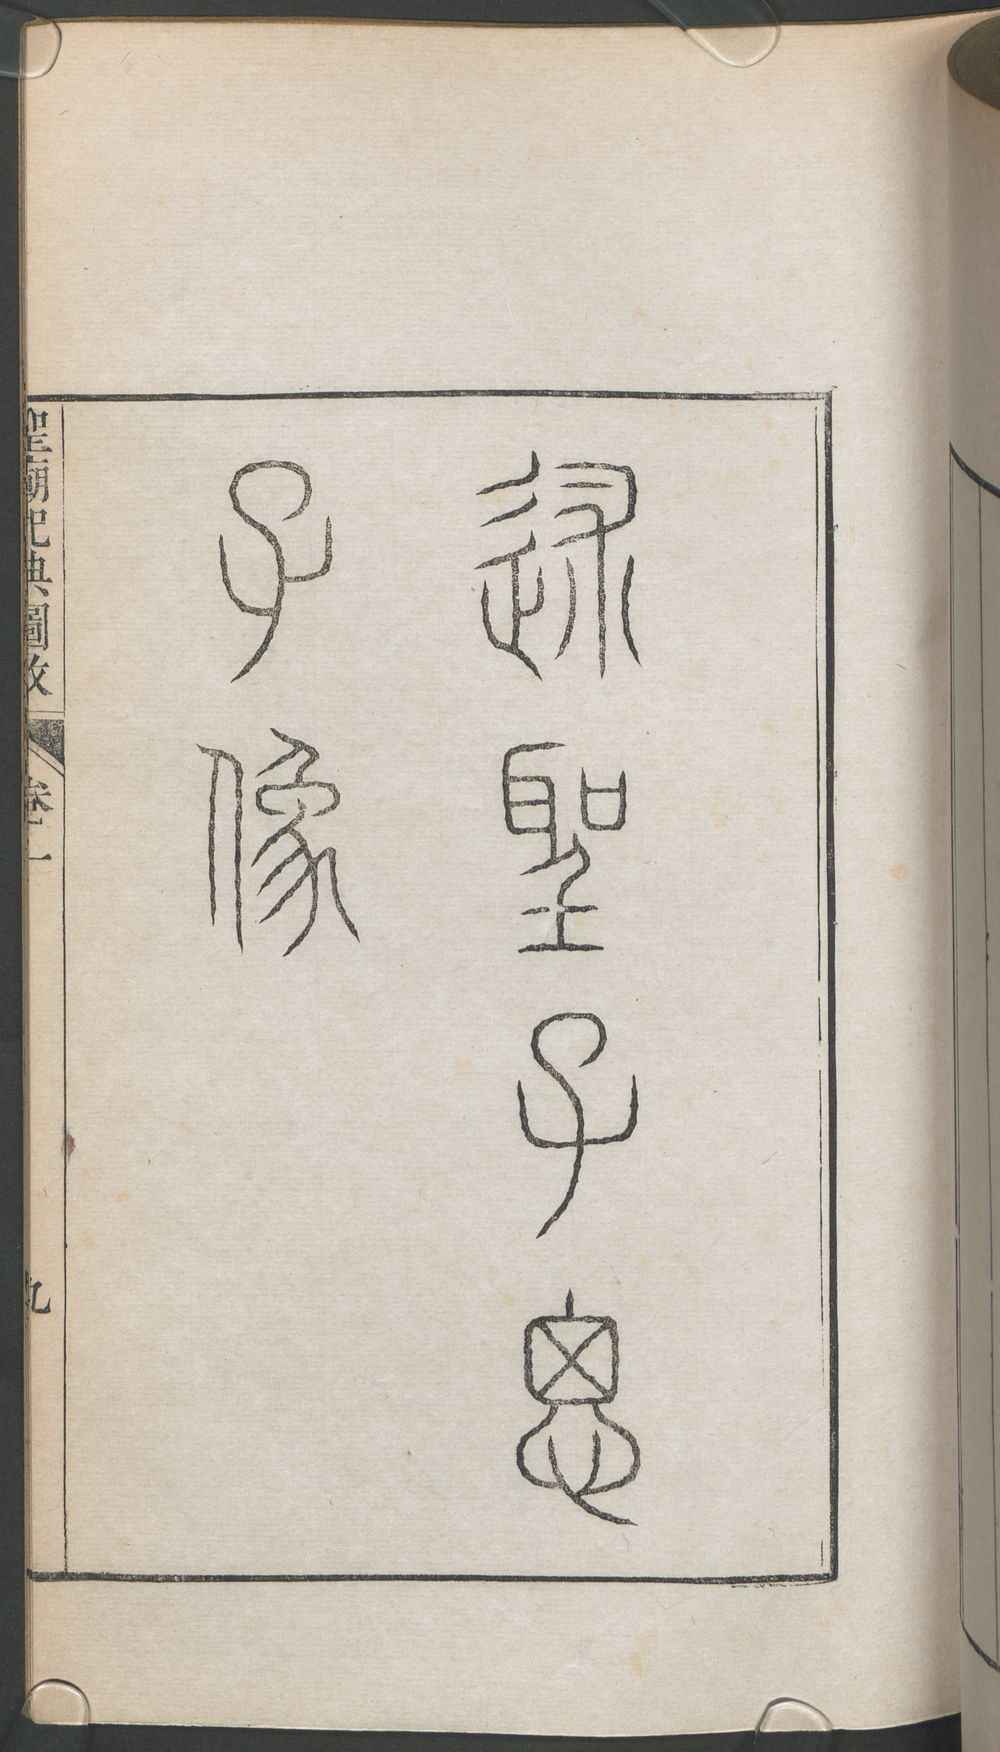 述聖子思
子像
聖廟祀典圖攷
卷一
九